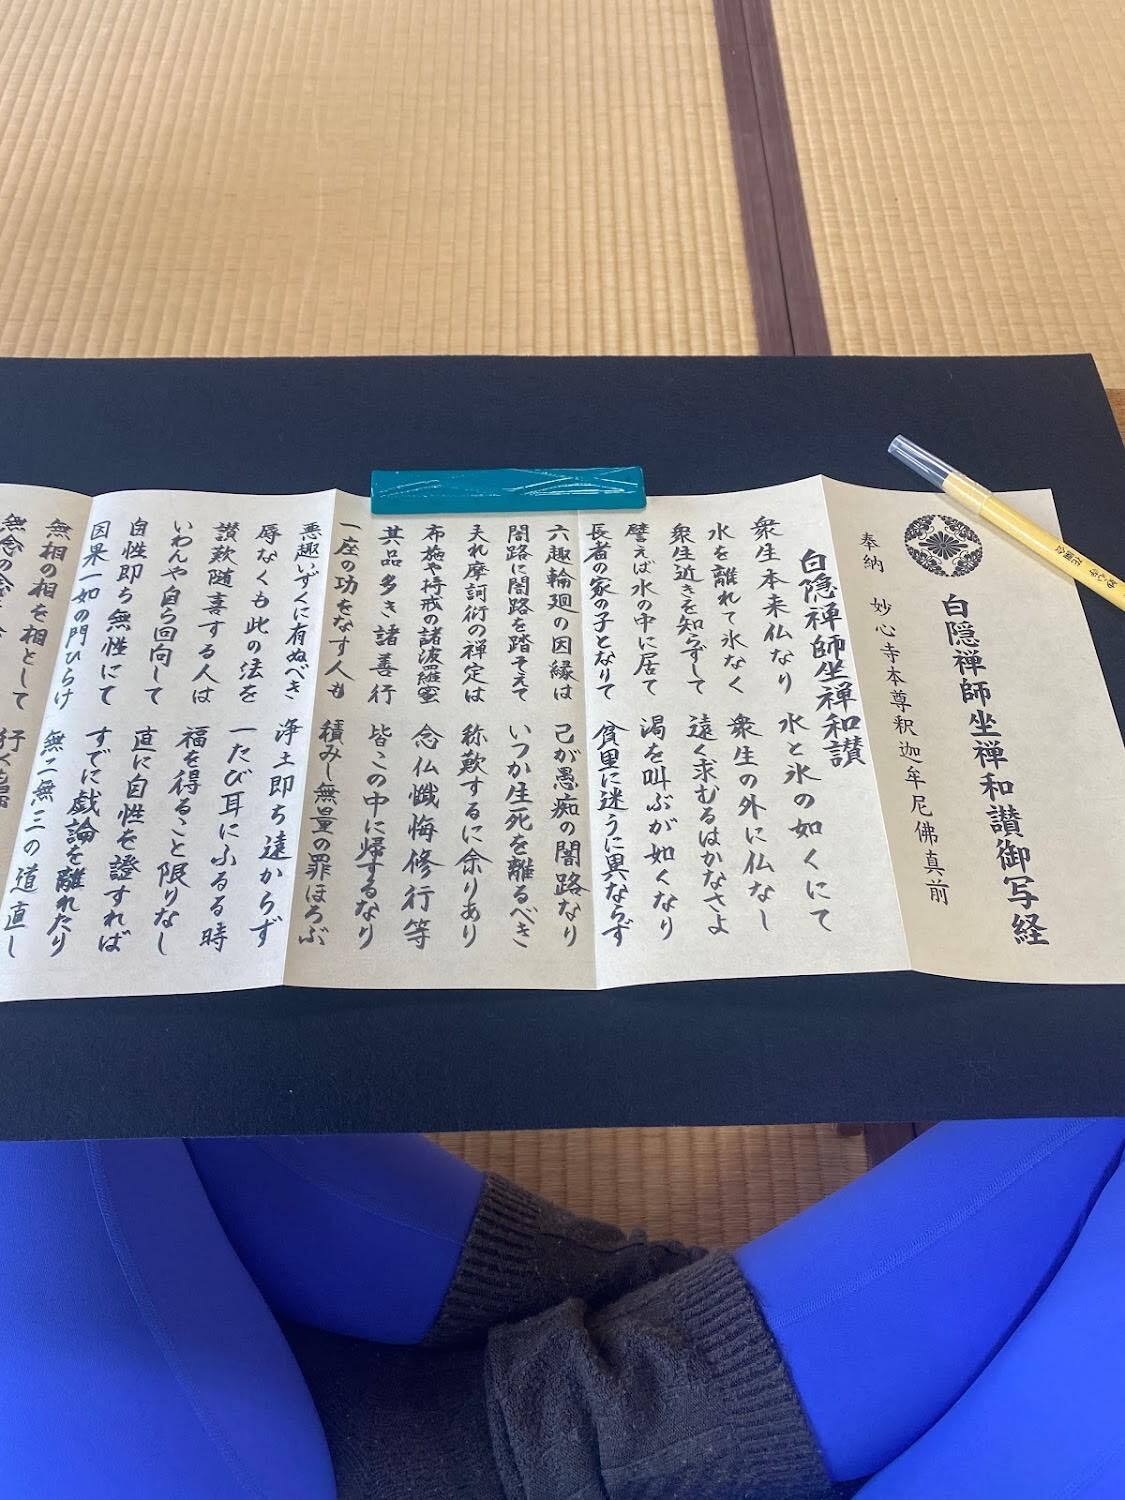 白隠禅師坐禅和讃御写経
奉納　妙心寺本尊釈迦牟尼佛真前
白隠禅師坐禅和讃
衆生本来仏なり　水と氷の如くにて
水を離れて氷なく　衆生の外に仏なし
衆生近きを知らずして　遠く求むるはかなさよ
譬えば水の中に居て　渇を叫ぶが如くなり
長者の家の子となりて　貧里に迷うに異ならず
六趣輪廻の因縁は　己が愚痴の闇路なり
闇路に闇路を踏そえて　いつか生死を離るべき
夫れ摩訶衍の禅定は　称歎するに余りあり
布施や持戒の諸波羅蜜　念仏懺悔修行等
其品多き諸善行　皆この中に帰するなり
一座の功をなす人も　積みし無量の罪ほろぶ
悪趣いずくに有ぬべき　浄土即ち遠からず
辱なくも此の法を　一たび耳にふるる時
讃歎随喜する人は　福を得ること限りなし
いわんや自ら回向して　直に自性を證すれば
自性即ち無性にて　すでに戯論を離れたり
因果一如の門ひらけ　無二無三の道直し
無相の相を相として　行くも
無念の念を